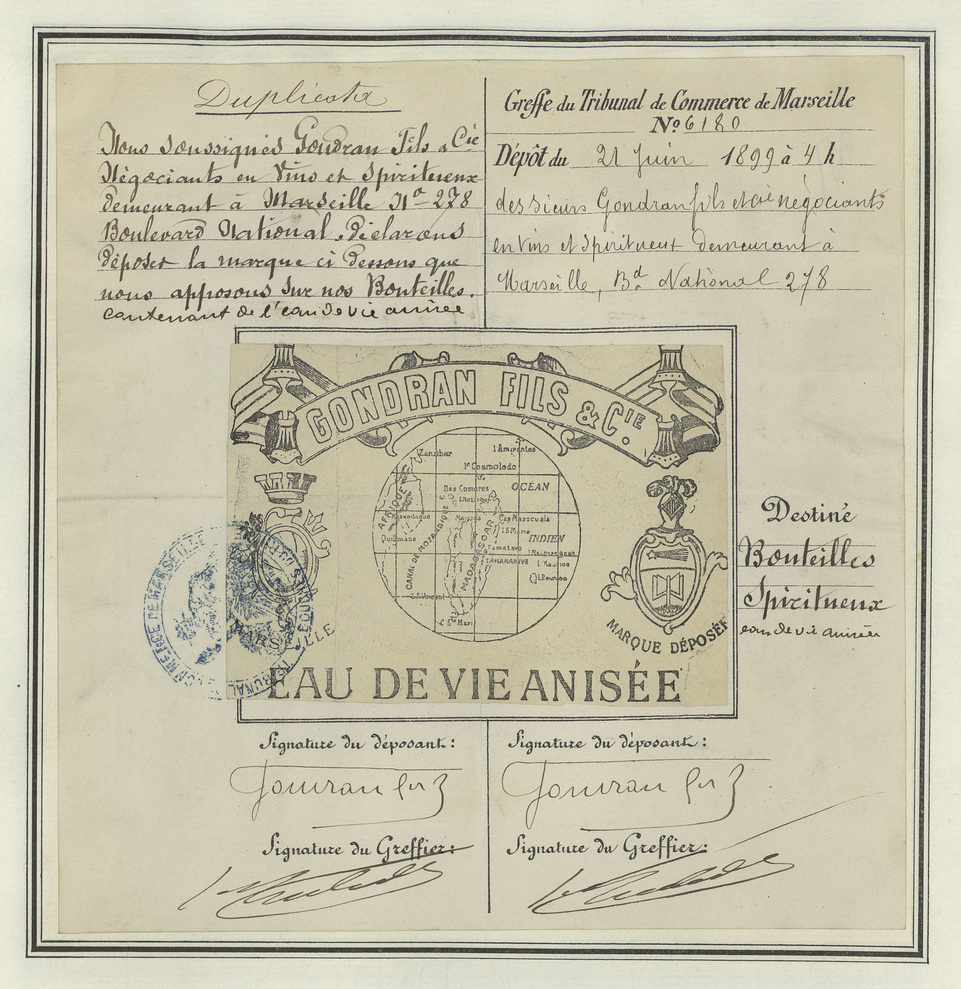 Duplicata
Nous soussignés Gondran Fils & Cie
Négociants en Vins et Spiritueux
demeurant à Marseille No 278
Boulevard National. Déclarons
déposer la marque ci dessous que
nous apposons sur nos Bouteilles.
contenant de l'eau de vie anisée
Greffe du Tribunal de Commerce de Marseille
No 6180
Dépôt du 21 Juin 1899 à 4 h
des sieurs Gondran fils et Cie négociants
en vins et spiritueux demeurant à
Marseille, Bd National 278
GONDRAN FILS & CIE.
Zanzibar
I. Amirantes
Is Cosmoledo
Iles Comores
OCEAN
AFRIQUE
Mozambique
INDIEN
Quilimane
Tamatave
TANANARIVE
I. Maurice
I. Réunion
CANAL DE MOZAMBIQUE
MADAGASCAR
C. S. Vincent
C. Ste Marie
MARSEILLE
MARQUE DÉPOSÉE
EAU DE VIE ANISÉE
TRIBUNAL DE COMMERCE DE MARSEILLE
Destiné
Bouteilles
Spiritueux
eau de vie anisée
Signature du déposant:
Signature du déposant:
Signature du Greffier:
Signature du Greffier: